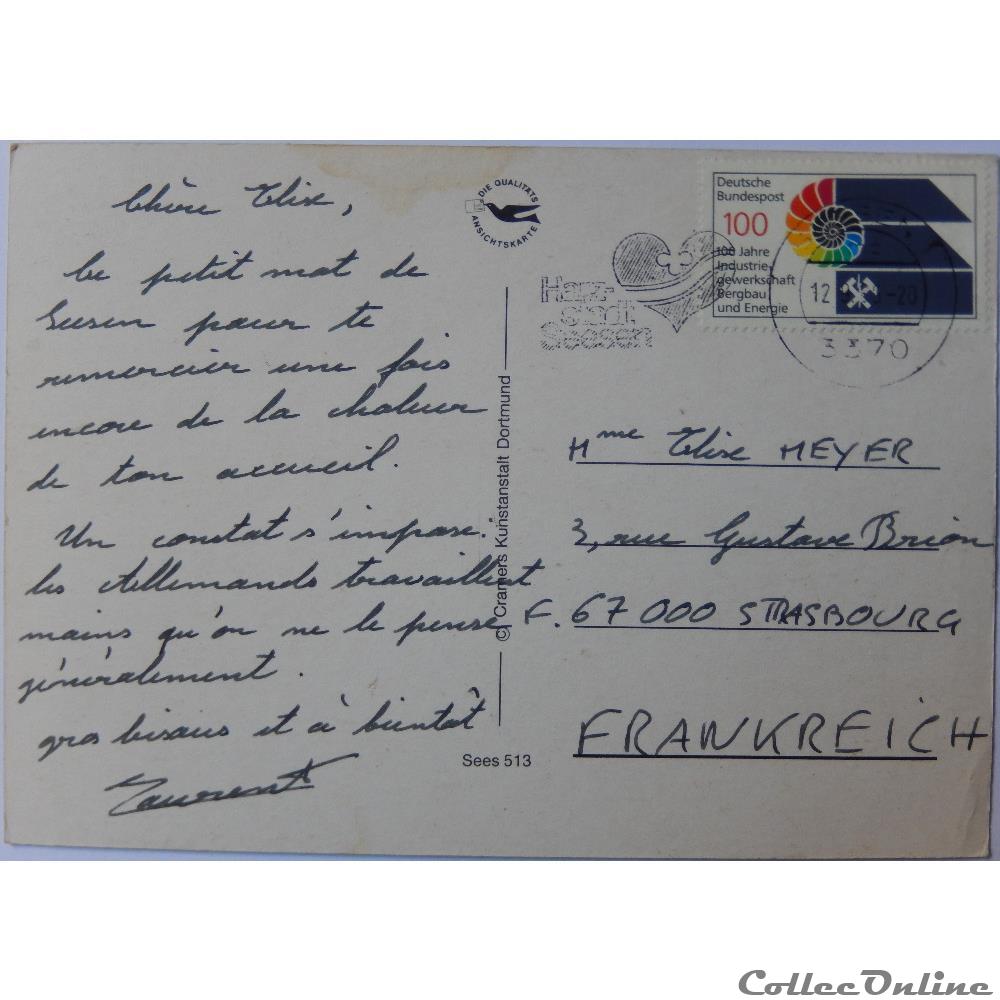 Chère Elise,
Ce petit mot de
Seesen pour te
remercier une fois
encore de la chaleur
de ton accueil.
Un constat s'impose.
les Allemands travaillent
moins qu'on ne le pense
généralement.
gros bisous et à bientôt
Laurent
DIE QUALITÄTS
ANSICHTSKARTE
© Cramers Kunstanstalt Dortmund
Sees 513
Harz-
stadt
Seesen
Deutsche
Bundespost
100
100 Jahre
Industrie-
gewerkschaft
Bergbau
und Energie
12
-20
3370
Mme Elise MEYER
3, rue Gustave Brion
F. 67 000 STRASBOURG
FRANKREICH
CollecOnline